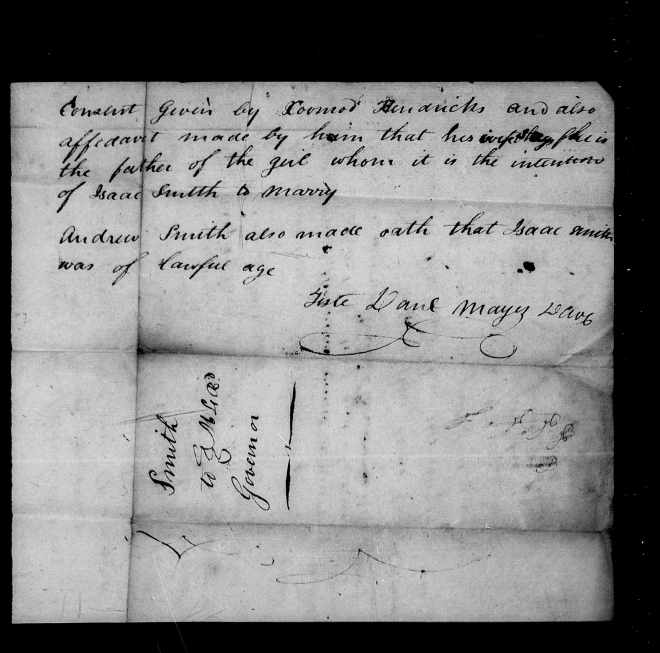 Consent Given by Hendricks and also
affedavit made by him that he is
the father of the girl whom it is the intention
of Isaac Smith to marry
Andrew Smith also made oath that Isaac Smith
was of lawful age
Teste Danl Mayes
Smith
to
Governor